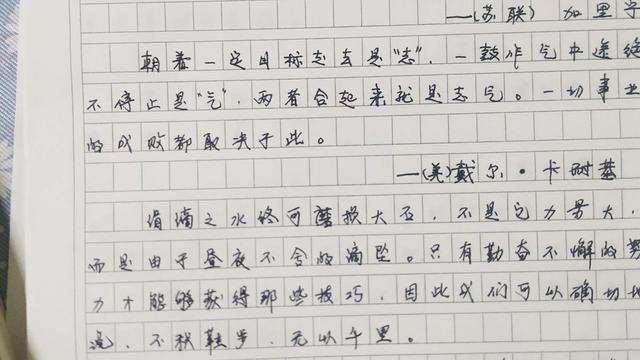 ——(苏联) 加里宁
朝着一定目标走去是“志”，一鼓作气中途绝
不停止是“气”，两者合起来就是志气。一切事业
的成败都取决于此。
——(美)戴尔·卡耐基
涓滴之水终可磨损大石，不是它力量大，
而是由于昼夜不舍的滴坠。只有勤奋不懈的努
力才能够获得那些技巧，因此我们可以确切地
说，不积跬步，无以千里。